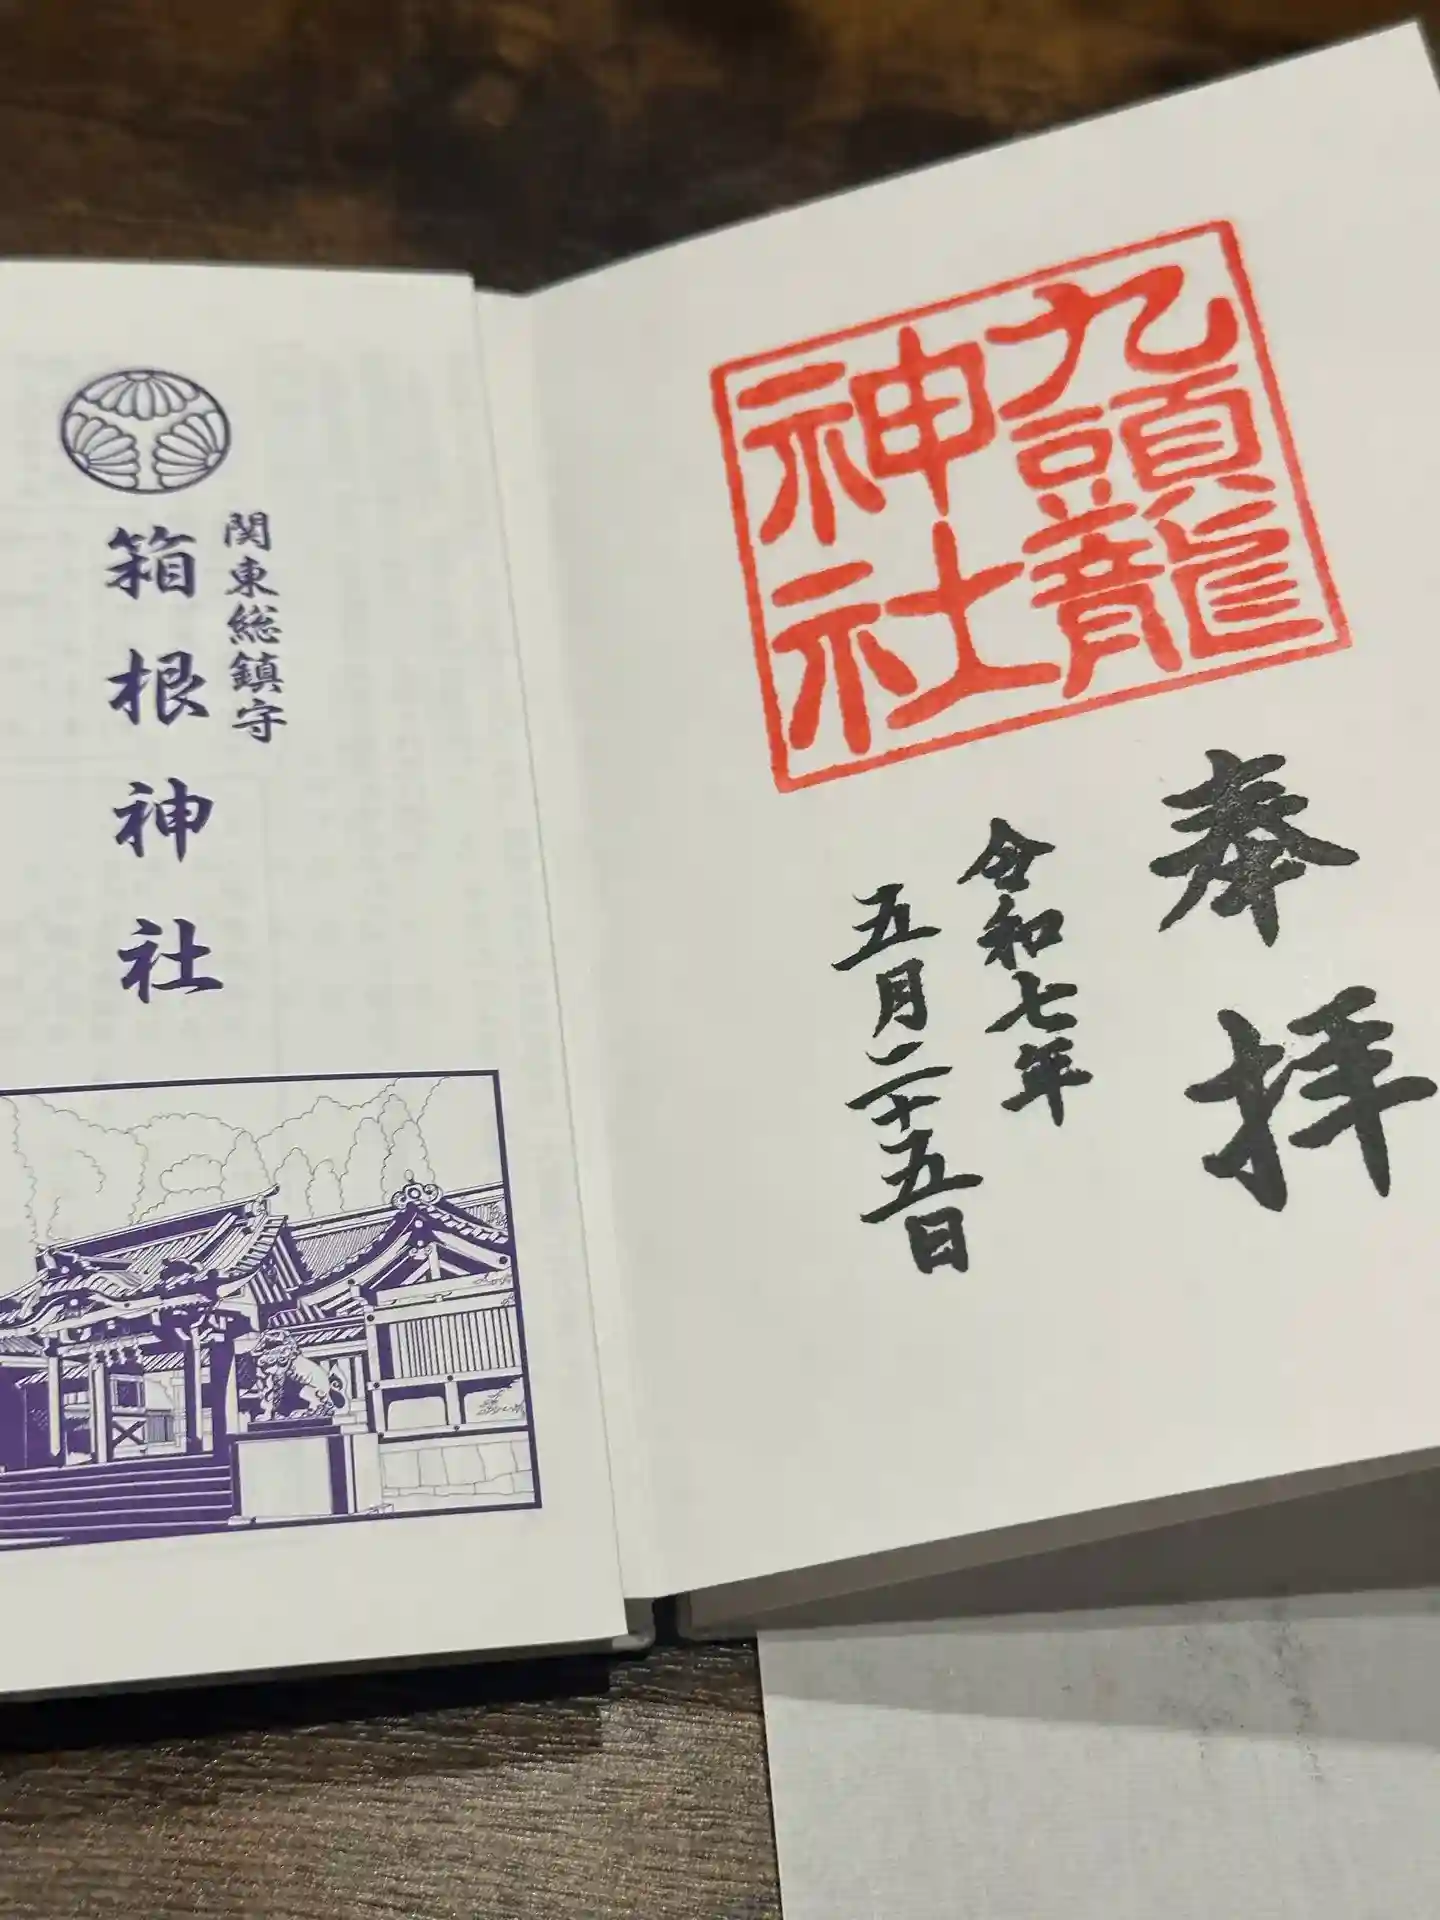 関東総鎮守
箱根神社
九頭龍
神社
奉拝
令和七年
五月二十五日